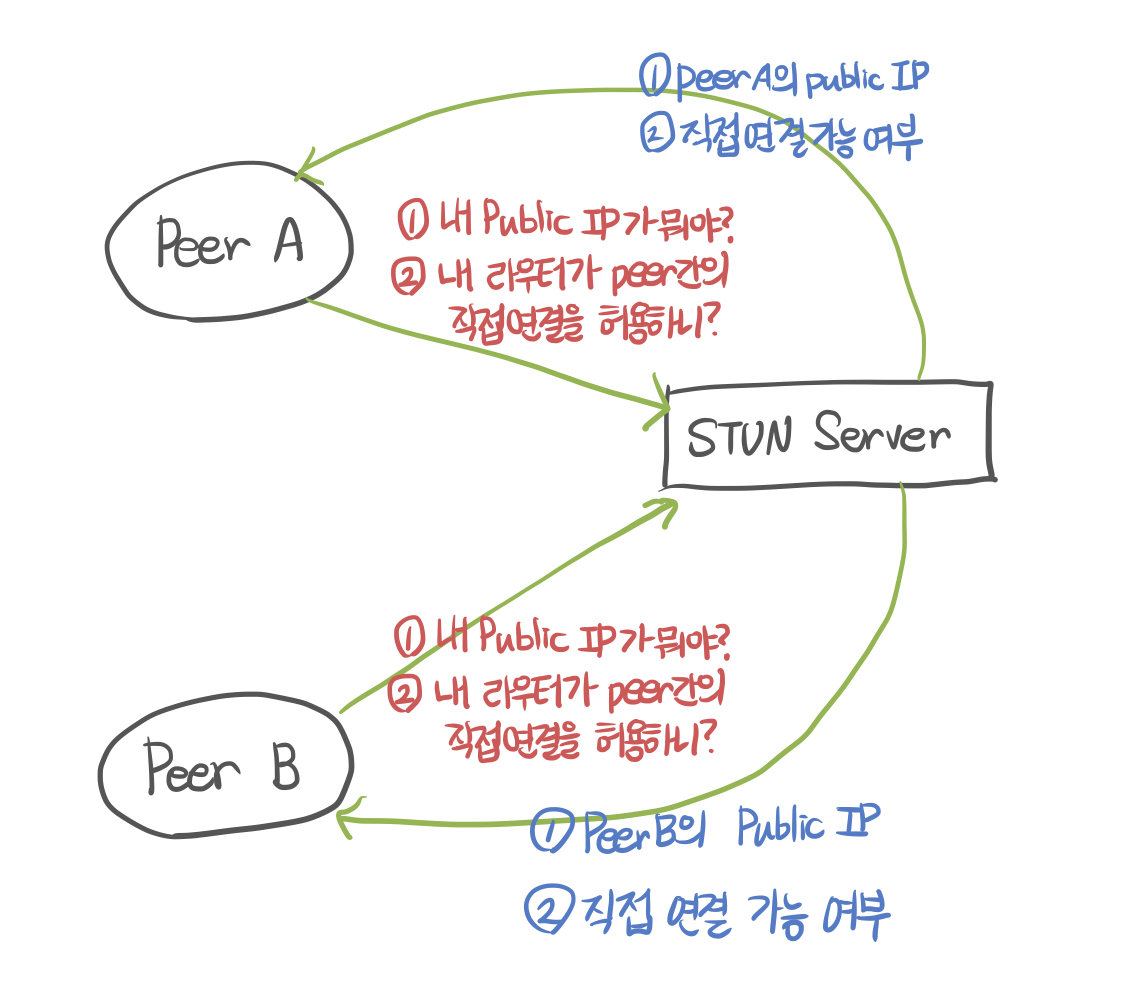 ① peerA의 public IP
② 직접 연결 가능 여부
Peer A
① 내 Public IP가 뭐야?
② 내 라우터가 peer간의
직접연결을 허용하니?
STUN Server
① 내 Public IP가 뭐야?
② 내 라우터가 peer간의
직접연결을 허용하니?
Peer B
① PeerB의 Public IP
② 직접 연결 가능 여부